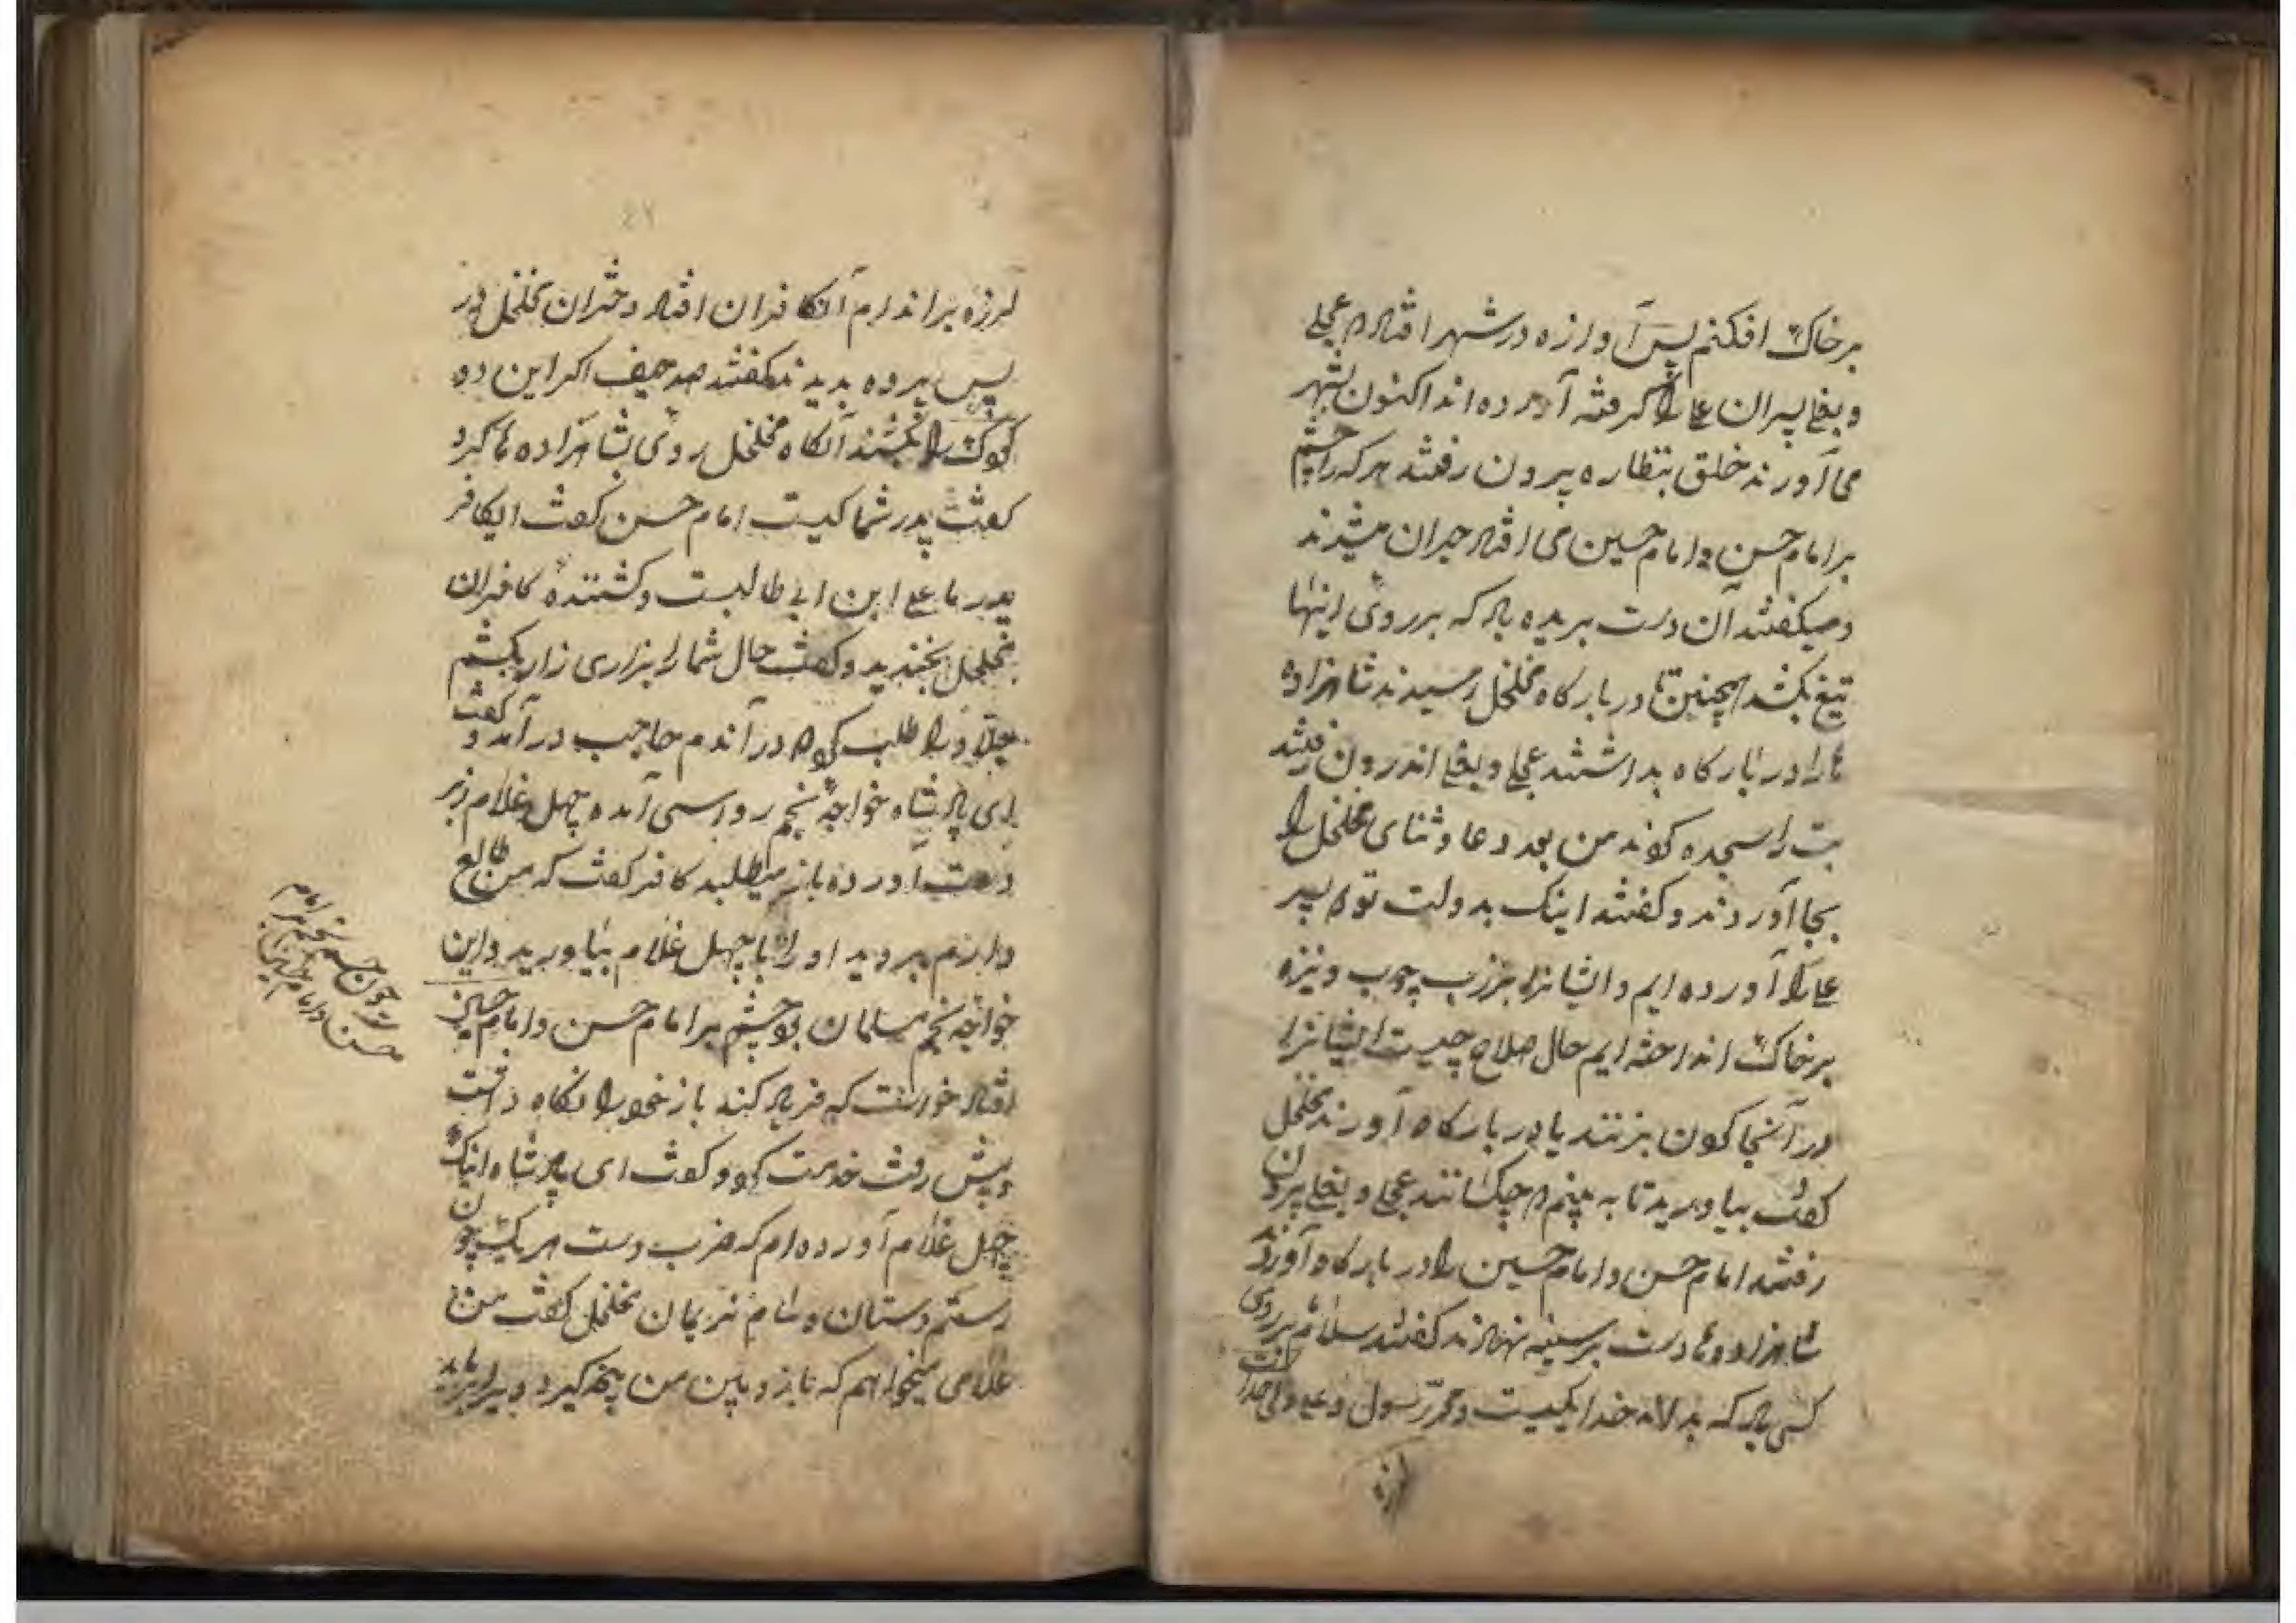 برخاک افکنم پس آوازه در شهر افتاد م عجلی
و بغلی پسران علی را گرفته آورده اند اکنون بشهر
می آورند خلق بنظاره بیرون رفتند هر که را چشم
بر امام حسن و امام حسین می افتاد حیران میشدند
و میکفتند آن دست بریده باد که بر روی اینها
تیغ بکشد همچنین تا در بارکاه مخلخل رسیدند شاهزاده
ها را در بارکاه بداشتند عجلی و بغلی اندرون رفتند
بت را سجده کردند من بعد دعا و ثنای مخلخل را
بجا آوردند و کفتند اینک بدولت تو م پسر
علی را آورده ایم و ایشانرا بزرب چوب و نیزه
بر خاک انداخته ایم حال صلاح چیست ایشانرا
در آنجا کردن بزنند یا در بارکاه آورند مخلخل
کفت بیاورید تا به بینم م چکسانند عجلی و بغلی بیرون
رفتند امام حسن و امام حسین را در بارکاه آوردند
شاهزاده ها دست بر سینه نهادند کفتند سلام ما بر روی
کسی باد که بداند خدا یکیست و محمد رسول و علی ولی خداست
لرزه
لرزه بر اندام آنکافران افتاد دختران مخلخل از
پس پرده بدیدند کفتند صد حیف اکر این دو
کودک را بکشند آنکاه مخلخل روی بشاهزاده ها کرد
کفت پدر شما کیست امام حسن کفت ایکافر
پدر ما علی ابن ابی طالبست و کشنده کافران
مخلخل بخندید و کفت حال شما را بزاری زار بکشم
جلاد را طلب کرد در آندم حاجب درآمد و کفت
ای پادشاه خواجه نجم رواسی آمده چهل غلام زبر
دست آورده باز میطلبد کافر کفت که من طالع
دارم بروید او را با چهل غلام بیاورید و این
خواجه نجم مسلمان بود چشم بر امام حسن و امام حسین
افتاد خواست که فریاد کند باز خود را نکاه داشت
و پیش رفت خدمت کرد و کفت ای پادشاه اینک
چهل غلام آورده ام که ضرب دست هر یک چون
رستم دستان و سام نریمان مخلخل کفت من
غلامی میخواهم که بازو بین من پنجه کیرد و برابر باید
چون چشم نجم بر امام
حسن و امام حسین